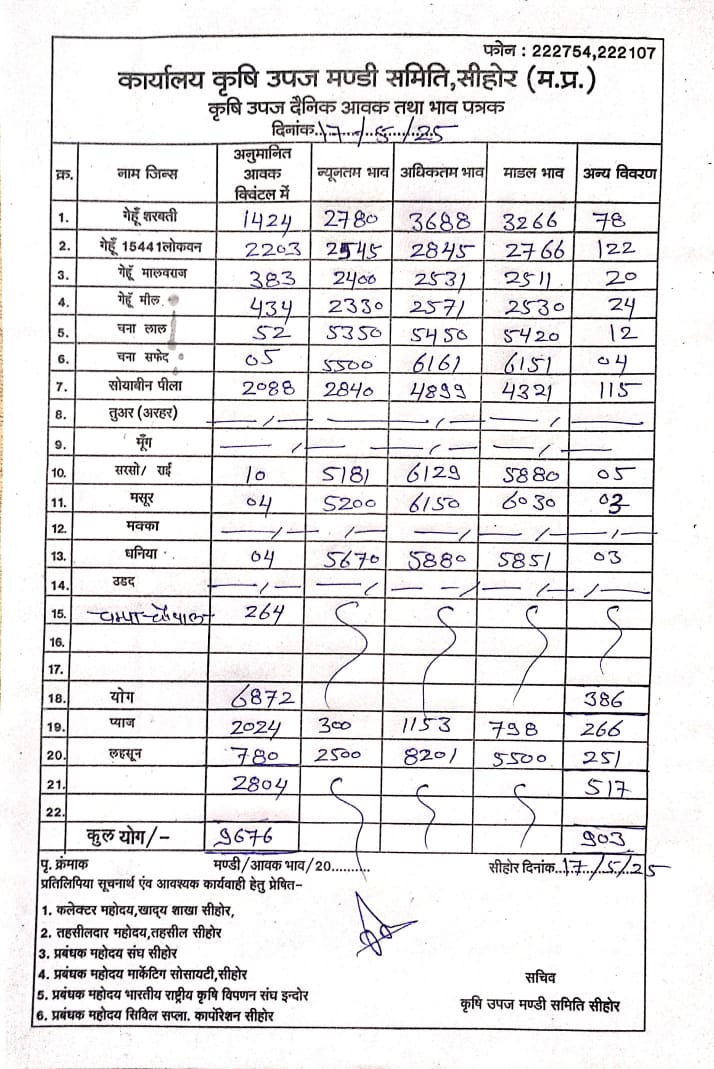 फोन : 222754,222107
कार्यालय कृषि उपज मण्डी समिति,सीहोर (म.प्र.)
कृषि उपज दैनिक आवक तथा भाव पत्रक
दिनांक..17../..5../..25
क्र. नाम जिन्स अनुमानित आवक क्विंटल में न्यूनतम भाव अधिकतम भाव माडल भाव अन्य विवरण
1. गेहूँ शरबती 1424 2780 3688 3266 78
2. गेहूँ 15441लोकवन 2203 2545 2845 2766 122
3. गेहूँ मालवराज 383 2400 2531 2511 20
4. गेहूँ मील 434 2330 2571 2530 24
5. चना लाल 52 5350 5450 5420 12
6. चना सफेद 05 5500 6161 6151 04
7. सोयाबीन पीला 2088 2840 4899 4321 115
8. तुअर (अरहर) —/— —/— —/— —/— —/—
9. मूँग —/— —/— —/— —/— —/—
10. सरसो/ राई 10 5181 6129 5880 05
11. मसूर 04 5200 6150 6030 03
12. मक्का —/— —/— —/— —/— —/—
13. धनिया 04 5670 5880 5851 03
14. उडद —/— —/— —/— —/— —/—
15. 264
16.
17.
18. योग 6872 386
19. प्याज 2024 300 1153 798 266
20. लहसून 780 2500 8201 5500 251
21. 2804 517
22.
कुल योग/- 9676 903
पृ. क्रंमाक मण्डी/आवक भाव/20.......... सीहोर दिनांक..17/5/25
प्रतिलिपिया सूचनार्थ एंव आवश्यक कार्यवाही हेतु प्रेषित–
1. कलेक्टर महोदय,खाद्य शाखा सीहोर,
2. तहसीलदार महोदय,तहसील सीहोर
3. प्रबंधक महोदय संघ सीहोर
4. प्रबंधक महोदय मार्केटिग सोसायटी,सीहोर
5. प्रबंधक महोदय भारतीय राष्ट्रीय कृषि विपणन संघ इन्दोर
6. प्रबंधक महोदय सिविल सप्ला. कार्पोरेशन सीहोर
सचिव
कृषि उपज मण्डी समिति सीहोर